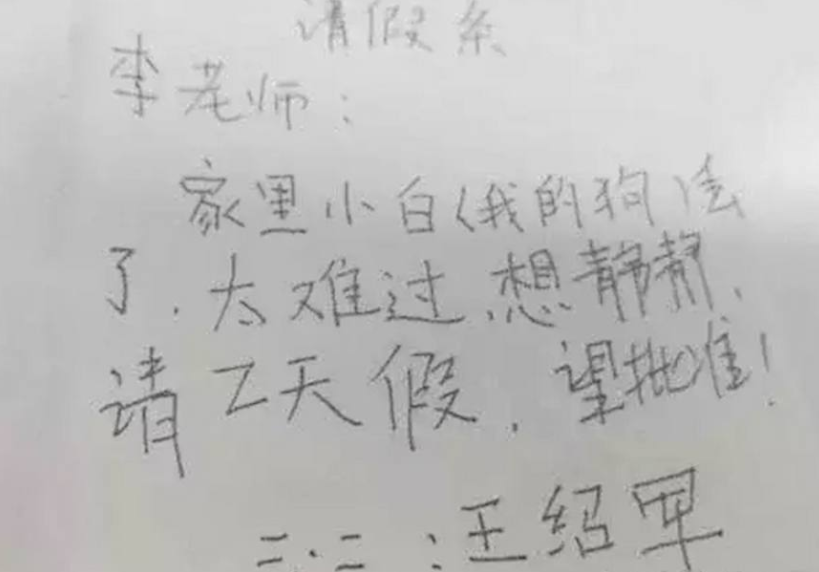 请假条
李老师：
家里小白（我的狗）丢
了，太难过，想静静，
请2天假，望批准！
二·二：王绍军